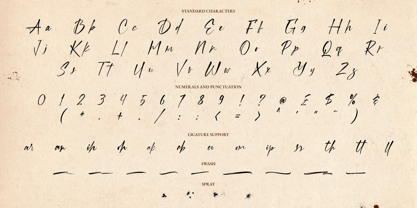 STANDARD CHARACTERS
Aa Bb Cc Dd Ee Ff Gg Hh Ii
Jj Kk Ll Mm Nn Oo Pp Qq Rr
Ss Tt Uu Vv Ww Xx Yy Zz
NUMERALS AND PUNCTUATION
0 1 2 3 4 5 6 7 8 9 ! ? @ £ $ % &
LIGATURE SUPPORT
SWASH
SPRAY